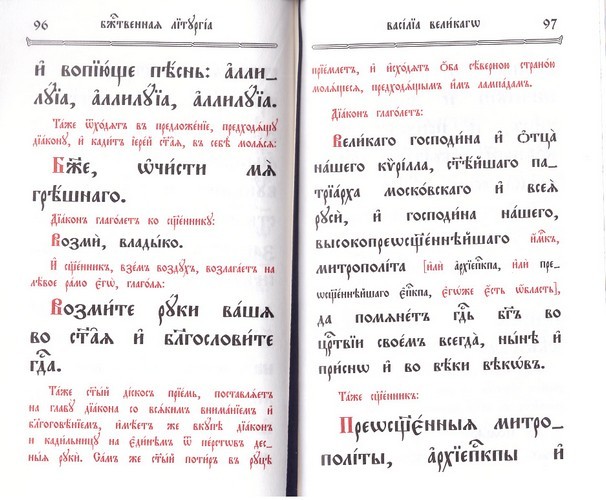 96 бж҃твенная лїтꙋргі́а
и҆ вопїю́ще пѣ́снь: а҆ллилꙋ́їа, а҆ллилꙋ́їа, а҆ллилꙋ́їа.
Та́же ѿхо́дѧтъ въ предложе́нїе, предходѧ́щꙋ
дїа́конꙋ, и҆ кади́тъ і҆ере́й ст҃а̑ѧ, въ себѣ̀ молѧ́сѧ:
Бж҃е, ѡ҆чи́сти мѧ̀
грѣ́шнаго.
Дїа́конъ глаго́летъ ко сщ҃е́нникꙋ:
Возмѝ, влады́ко.
И҆ сщ҃е́нникъ, взе́мъ воздꙋ́хъ, возлага́етъ на
лѣ́вое ра́мо є҆гѡ̀, глаго́лѧ:
Возми́те рꙋ́ки ва́шѧ
во ст҃а̑ѧ и҆ блг҃ослови́те
гдⷭ҇а.
Та́же ст҃ы́й ді́скосъ прїе́мь, поставлѧ́етъ
на главꙋ̀ дїа́кона со всѧ́кимъ внима́нїемъ и҆
блг҃оговѣ́нїемъ, и҆мѣ́етъ же вкꙋ́пѣ дїа́конъ
и҆ кади́льницꙋ на є҆ди́нѣмъ ѿ пе́рстѡвъ десны́ѧ рꙋкѝ. Са́мъ же ст҃ы́й поти́ръ въ рꙋ́цѣ
васі́лїа вели́кагѡ 97
прїе́млетъ, и҆ и҆схо́дѧтъ ѻ҆́ба сѣ́верною страно́ю
молѧ́щесѧ, предходѧ́щымъ и҆̀мъ лампа́дамъ.
Дїа́конъ глаго́летъ:
Вели́каго господи́на и҆ ѻ҆тца̀
на́шего кѷрі́лла, ст҃ѣ́йшаго патрїа́рха моско́вскаго и҆ всеѧ̀
рꙋсѝ, и҆ господи́на на́шего,
высокопреѡсщ҃е́ннѣйшаго и҆́мⷬ҇къ,
митрополі́та [и҆лѝ а҆рхїепⷭ҇кпа, и҆лѝ преѡсщ҃е́ннѣйшаго є҆пⷭ҇кпа, є҆гѡ́же є҆́сть ѻ҆́бласть],
да помѧне́тъ гдⷭ҇ь бг҃ъ во
црⷭ҇твїи свое́мъ всегда̀, ны́нѣ и҆
при́снѡ и҆ во вѣ́ки вѣкѡ́въ.
Та́же сщ҃е́нникъ:
Преѡсщ҃є́нныѧ митрополі́ты, а҆рхїепⷭ҇кпы и҆